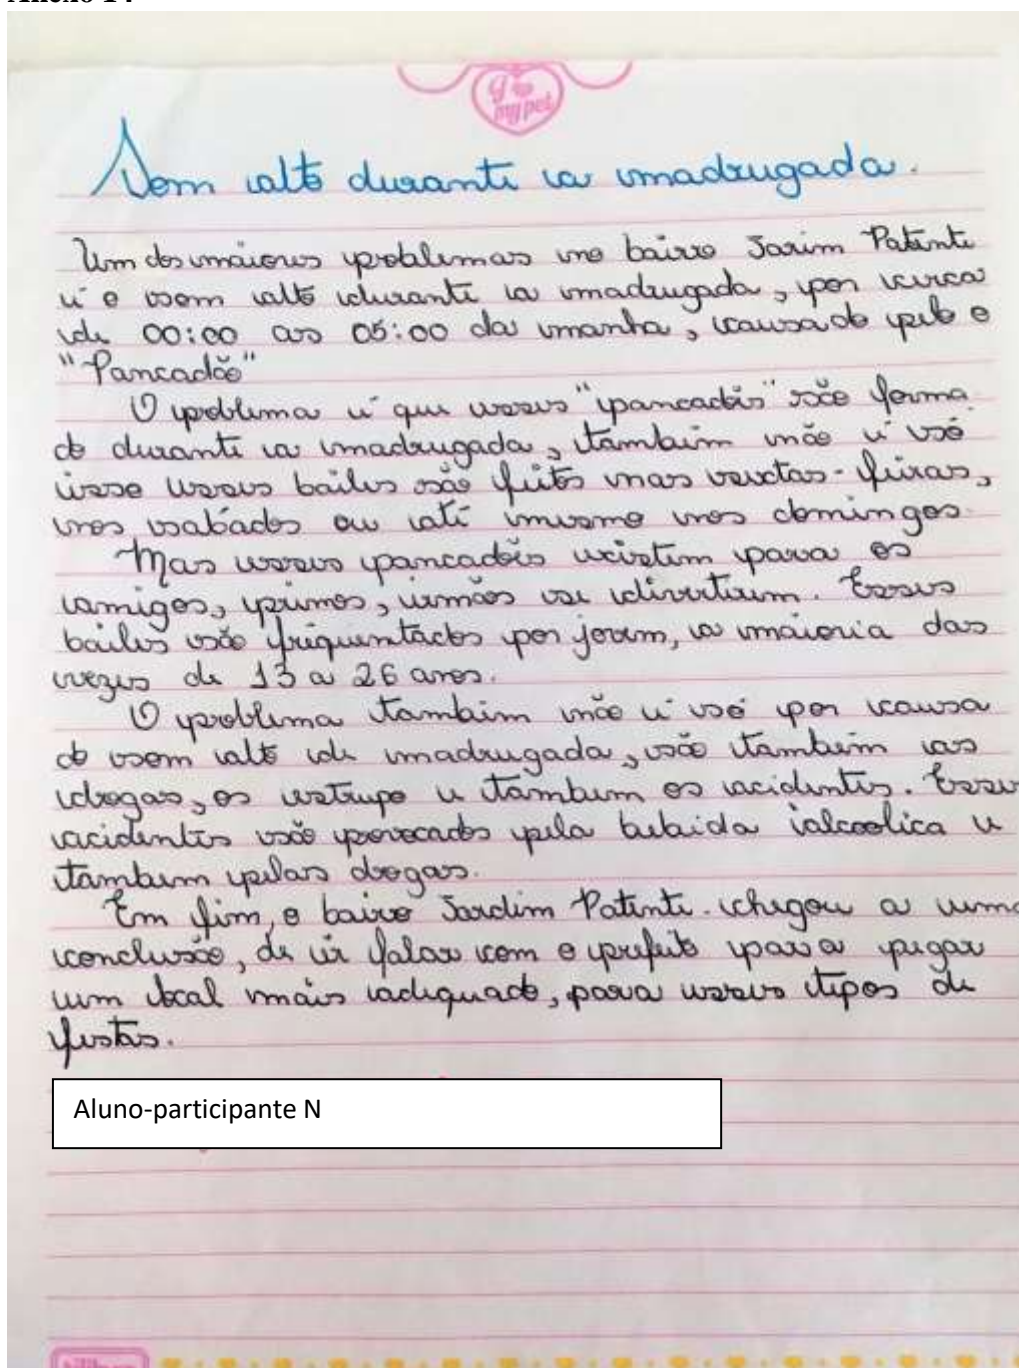 Anexo 14
I my pet
Som alto durante a madrugada.
Um dos maiores problemas no bairro Jarim Patente
é o som alto durante a madrugada, por cerca
de 00:00 as 05:00 da manha, causado pelo o
"Pancadão"
O problema é que esses "pancadões" são forma
do durante a madrugada, também não é só
isso esses bailes são feitos nas sextas-feiras,
nos sabados ou até mesmo nos domingos.
Mas esses pancadões existem para os
amigos, primos, irmãos se divertirem. Esses
bailes são frequentados por jovem, a maioria das
vezes de 13 a 26 anos.
O problema também não é só por causa
do som alto de madrugada, são também as
drogas, os estrupo e tambem os acidentes. Esses
acidentes são provocados pela bebida alcoolica e
tambem pelas drogas.
Em fim, o bairro Jardim Patente. chegou a uma
conclusão, de ir falar com o prefeito para pegar
um local mais adequado, para esses tipos de
festas.
Aluno-participante N